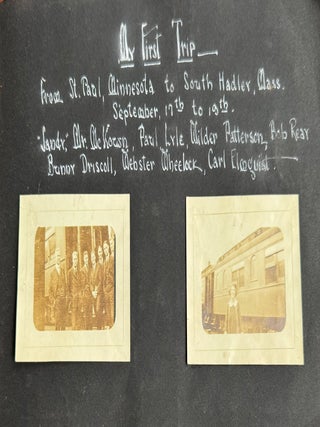 My First Trip—
From St. Paul, Minnesota to South Hadley, Mass.
September, 17th to 19th.
"Sandy," Mr. McKown, Paul Lyle, Wilder Patterson, Bob Rear
Bunny Driscoll, Webster Wheelock, Carl Elmquist.—